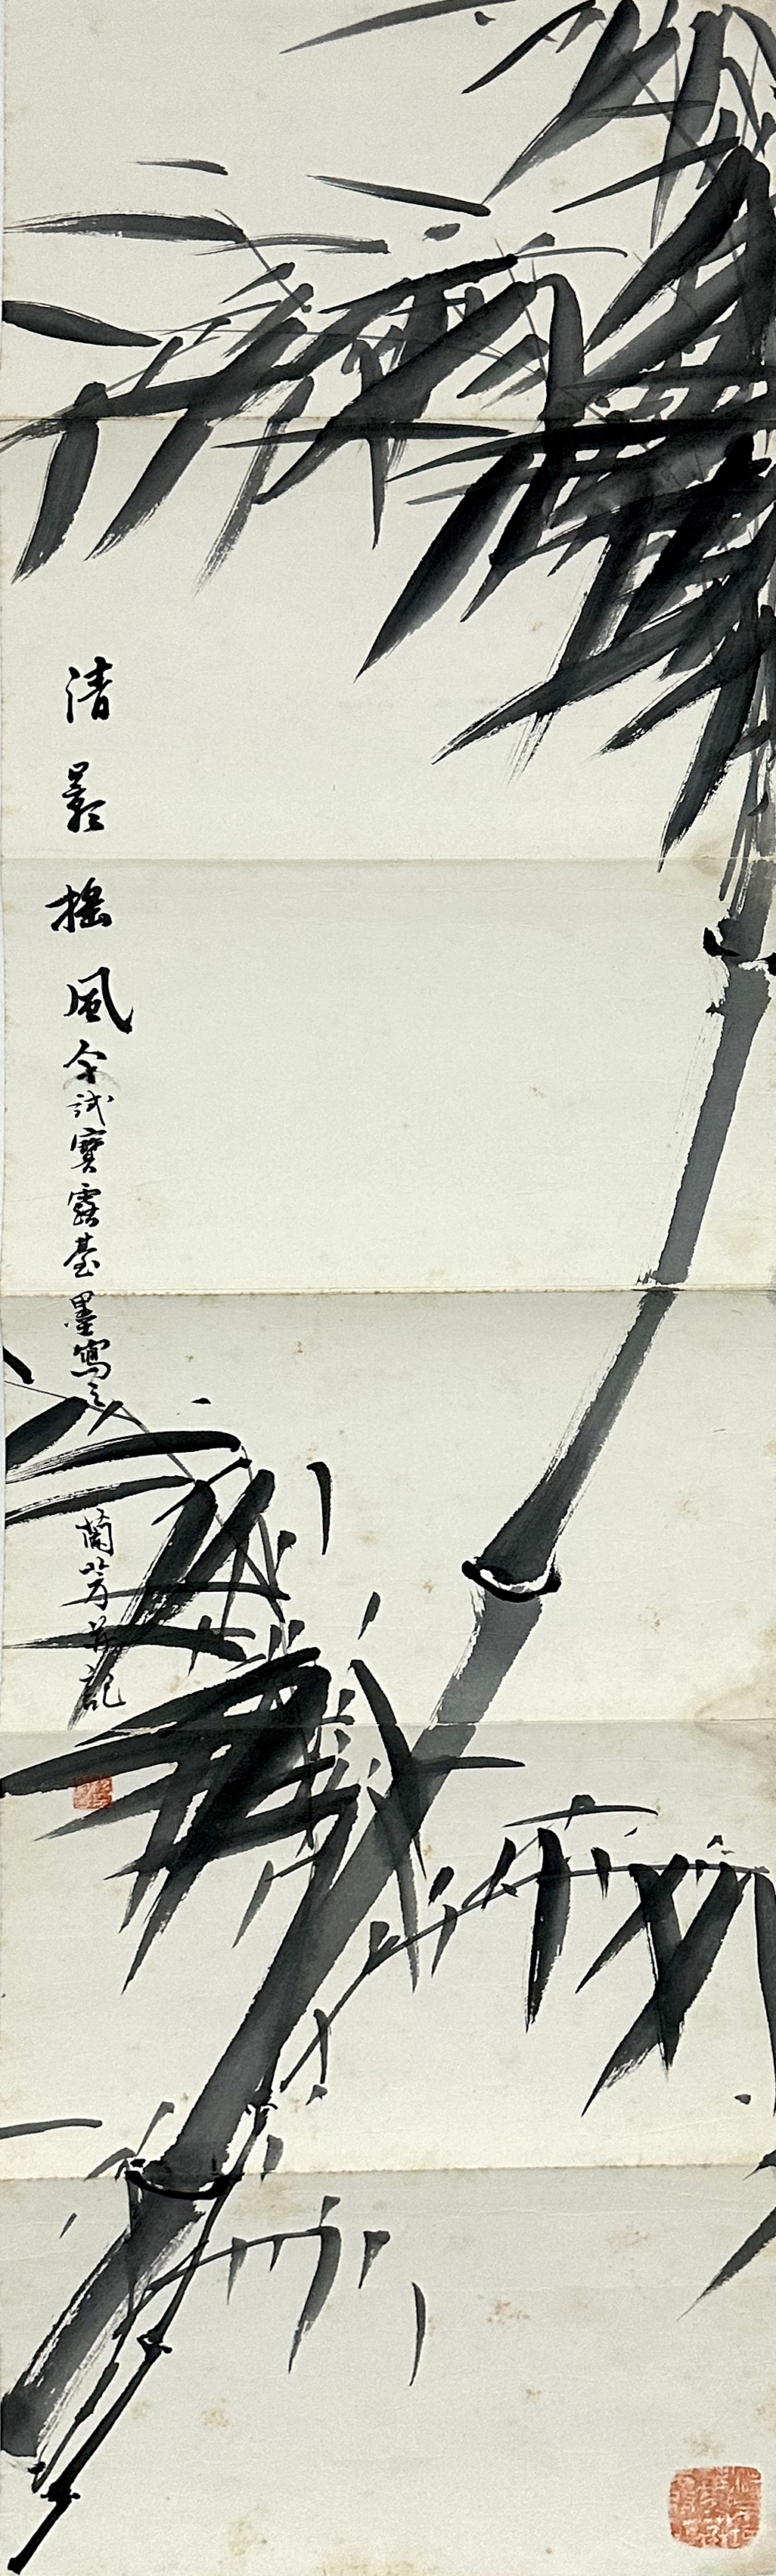 清影搖風 今試寶露臺墨寫之
蘭芳並記